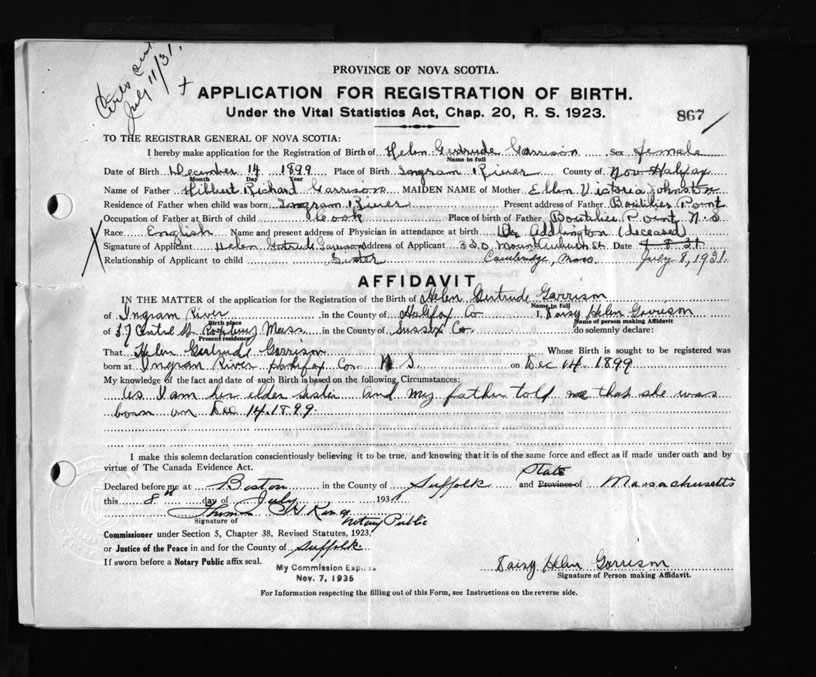 July 11/31.
PROVINCE OF NOVA SCOTIA.
APPLICATION FOR REGISTRATION OF BIRTH.
Under the Vital Statistics Act, Chap. 20, R. S. 1923.
867
TO THE REGISTRAR GENERAL OF NOVA SCOTIA:
I hereby make application for the Registration of Birth of Helen Gertrude Garrison Sex female
Name in full
Date of Birth December 14 1899 Place of Birth Ingram River County of Halifax
Month Day Year
Name of Father Hibbert Richard Garrison MAIDEN NAME of Mother Ellen Victoria Johnston
Residence of Father when child was born Ingram River Present address of Father Boutilier Point
Occupation of Father at Birth of child Cook Place of birth of Father Boutilier Point N.S
Race English Name and present address of Physician in attendance at birth Dr Addlington (deceased)
Signature of Applicant Helen Gertrude Garrison Address of Applicant 330 Mount Auburn St. Date 7 8 31
Relationship of Applicant to child Sister Cambridge, Mass. July 8, 1931.
AFFIDAVIT
IN THE MATTER of the application for the Registration of the Birth of Helen Gertrude Garrison
Name in full
of Ingram River in the County of Halifax Co I, Daisy Helen Garrison
Birth place Name of person making Affidavit
of 37 Central St. Roxbury Mass in the County of Sussex Co. do solemnly declare:
Present residence
That Helen Gertrude Garrison Whose Birth is sought to be registered was
born at Ingram River Halifax Co. N S. on Dec 14. 1899
My knowledge of the fact and date of such Birth is based on the following Circumstances:
as I am her elder sister and my father told me that she was
born on Dec 14. 1899.
I make this solemn declaration conscientiously believing it to be true, and knowing that it is of the same force and effect as if made under oath and by
virtue of The Canada Evidence Act.
State
Declared before me at Boston in the County of Suffolk and Province of Massachusetts
this 8th day of July 1931
Thomas H King
Signature of Notary Public
Commissioner under Section 5, Chapter 38, Revised Statutes, 1923,
or Justice of the Peace in and for the County of Suffolk
If sworn before a Notary Public affix seal.
My Commission Expires
Nov. 7, 1936
Daisy Helen Garrison
Signature of Person making Affidavit.
For Information respecting the filling out of this Form, see Instructions on the reverse side.